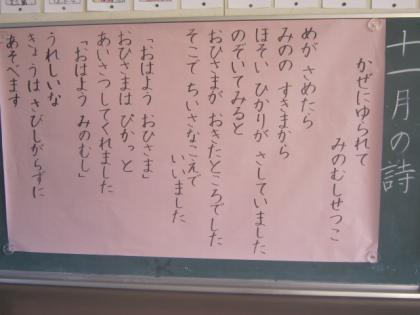 十一月の詩
かぜにゆられて
みのむしせつこ
めが さめたら
みのの すきまから
ほそい ひかりが さしていました
のぞいてみると
おひさまが おきたところでした
そこで ちいさなこえで
いいました
「おはよう おひさま」
おひさまは ぴかっと
あいさつしてくれました
「おはよう みのむし」
うれしいな
きょうは さびしがらずに
あそべます